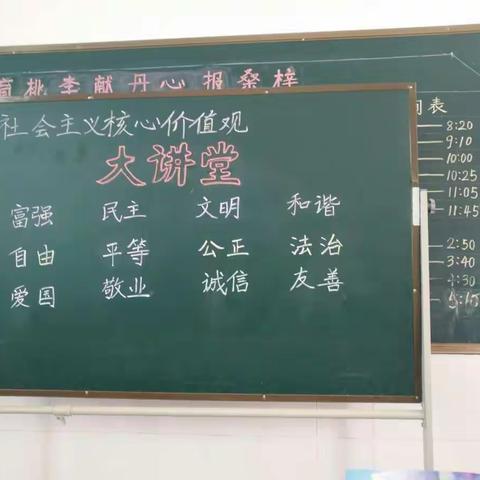 育桃李献丹心报桑梓
社会主义核心价值观
大讲堂
富强 民主 文明 和谐
自由 平等 公正 法治
爱国 敬业 诚信 友善
表
8:20
9:10
10:00
10:25
11:05
11:45
2:50
3:40
4:30